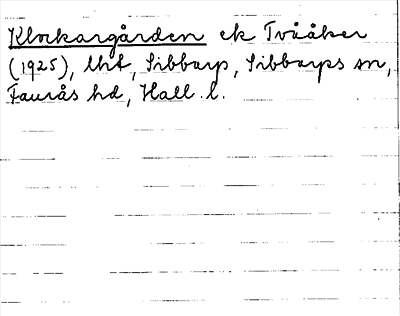 Klockargården ek Tvååker
(1925), lht, Sibbarp, Sibbarps sn,
Faurås hd, Hall. l.